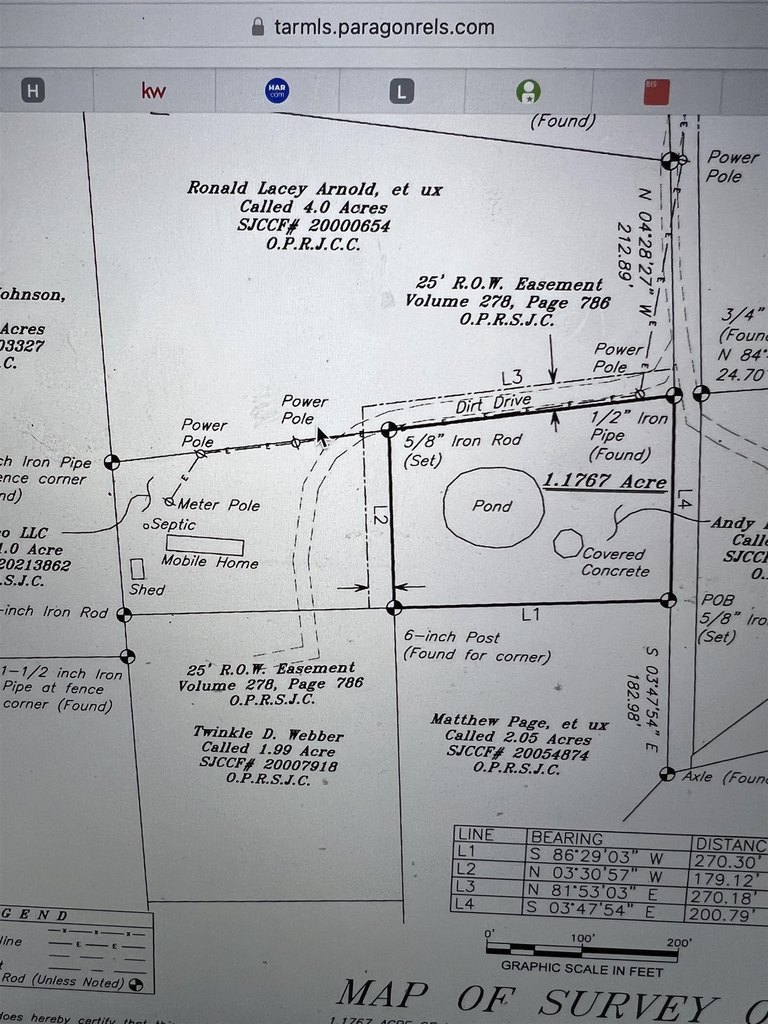 tarmls.paragonrels.com
H
kw
HAR
.com
L
BIS
(Found)
Power
Pole
Ronald Lacey Arnold, et ux
Called 4.0 Acres
SJCCF# 20000654
O.P.R.J.C.C.
N 04°28'27" W
212.89'
25' R.O.W. Easement
Volume 278, Page 786
O.P.R.S.J.C.
Johnson,
Acres
03327
.C.
3/4"
(Foun
N 84°
24.70
Power
Pole
L3
Dirt Drive
Power
Pole
Power
Pole
5/8" Iron Rod
(Set)
1/2" Iron
Pipe
(Found)
ch Iron Pipe
ence corner
nd)
1.1767 Acre
Pond
L2
L4
Meter Pole
Septic
Mobile Home
Shed
Covered
Concrete
o LLC
1.0 Acre
20213862
.S.J.C.
Andy
Calle
SJCCF
O.
-inch Iron Rod
L1
POB
5/8" Iro
(Set)
6-inch Post
(Found for corner)
1-1/2 inch Iron
Pipe at fence
corner (Found)
25' R.O.W. Easement
Volume 278, Page 786
O.P.R.S.J.C.
S 03°47'54" E
182.98'
Twinkle D. Webber
Called 1.99 Acre
SJCCF# 20007918
O.P.R.S.J.C.
Matthew Page, et ux
Called 2.05 Acres
SJCCF# 20054874
O.P.R.S.J.C.
Axle (Foun
LINE BEARING DISTANC
L1 S 86°29'03" W 270.30'
L2 N 03°30'57" W 179.12'
L3 N 81°53'03" E 270.18'
L4 S 03°47'54" E 200.79'
0' 100' 200'
GRAPHIC SCALE IN FEET
GEND
line
Rod (Unless Noted)
MAP OF SURVEY O
does hereby certify that this